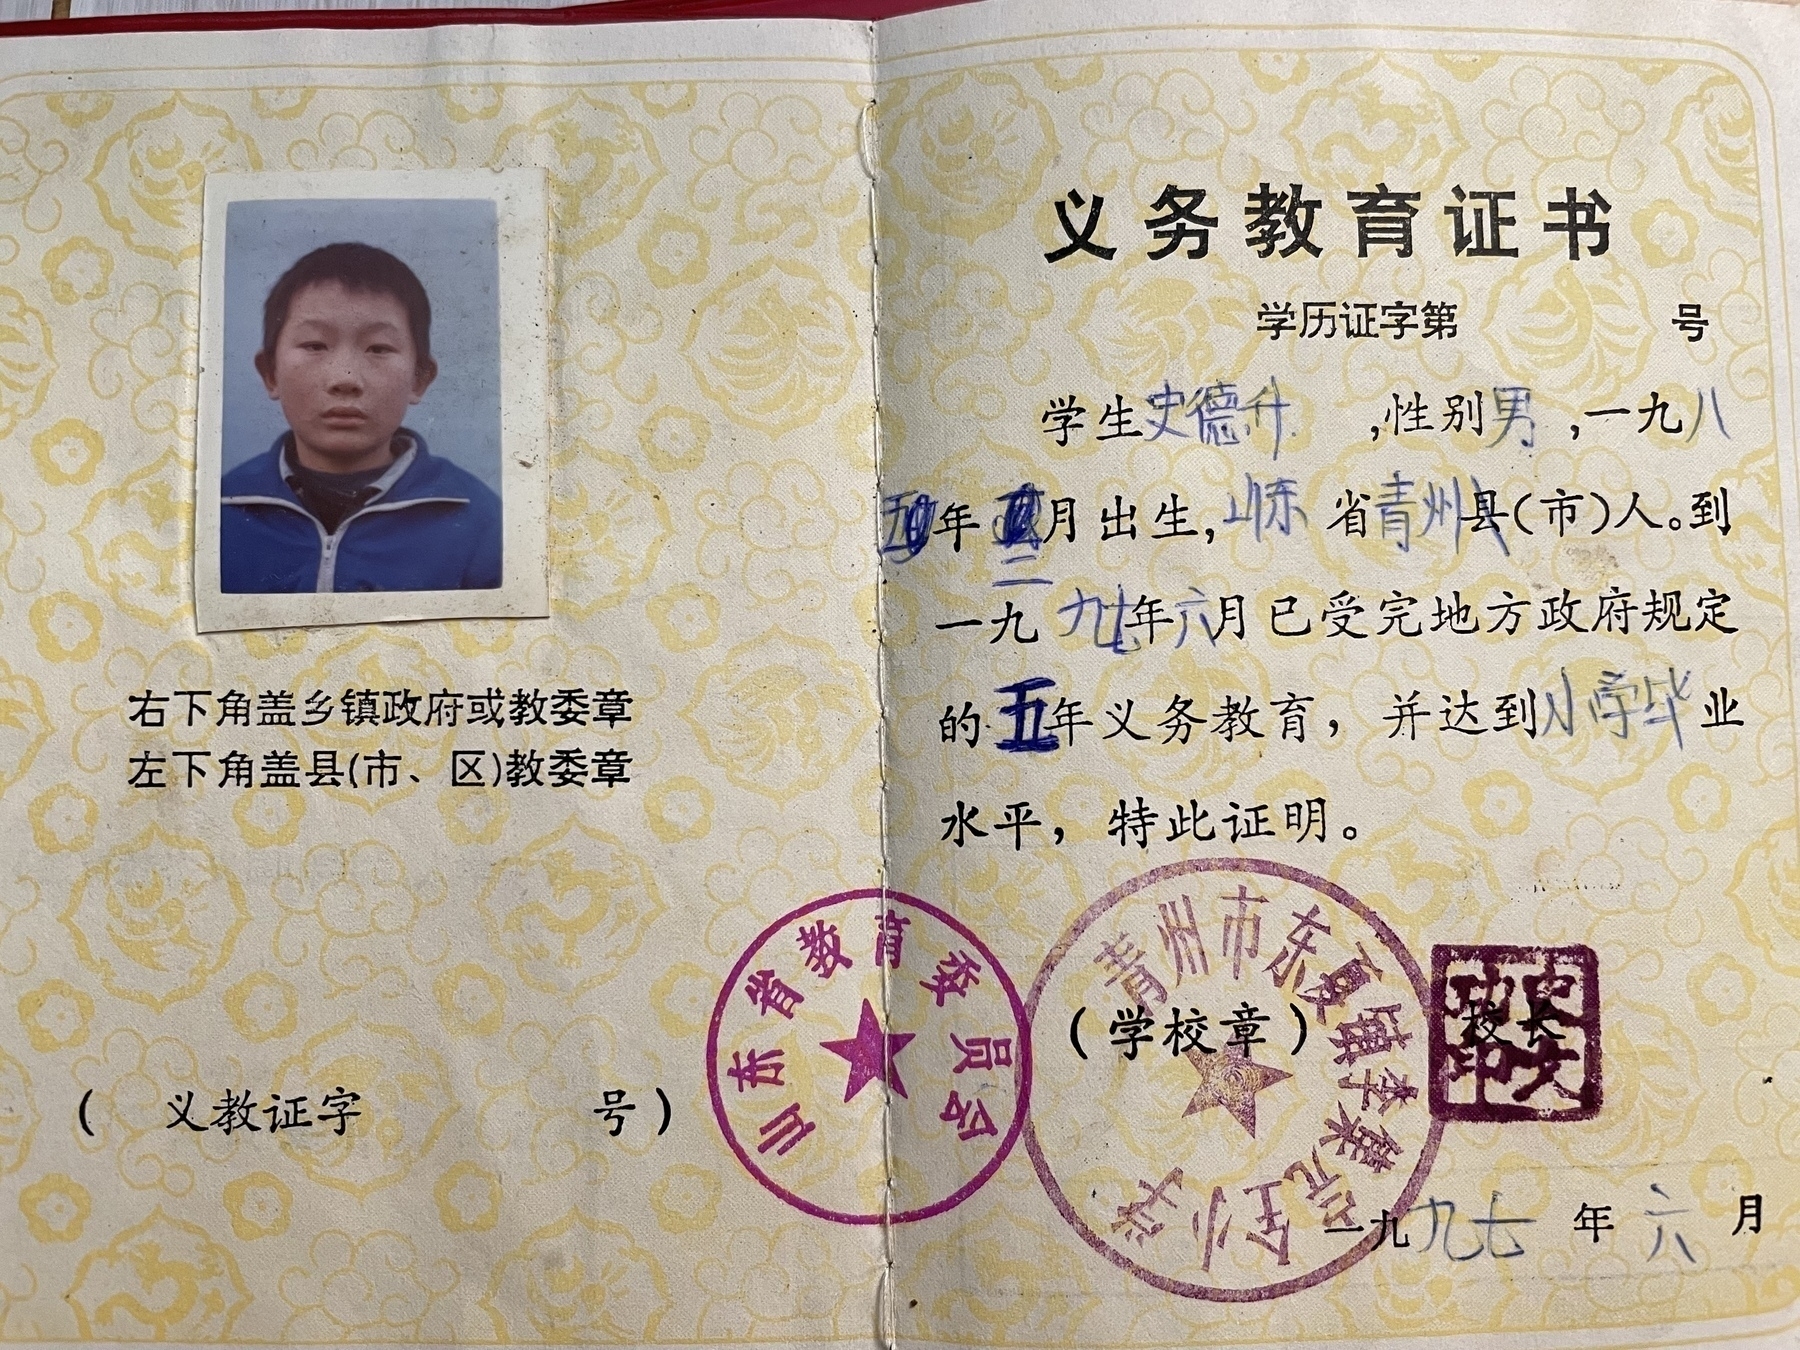 右下角盖乡镇政府或教委章
左下角盖县(市、区)教委章
( 义教证字 号)
义务教育证书
学历证字第 号
学生史德升 ,性别男 ,一九八
年 二月出生,山东 省青州县(市)人。到
一九九七年六月已受完地方政府规定
的五年义务教育，并达到小学毕业
水平，特此证明。
山东省教育委员会
青州市东夏镇李集完全小学
(学校章)
校长
一九九七 年 六 月